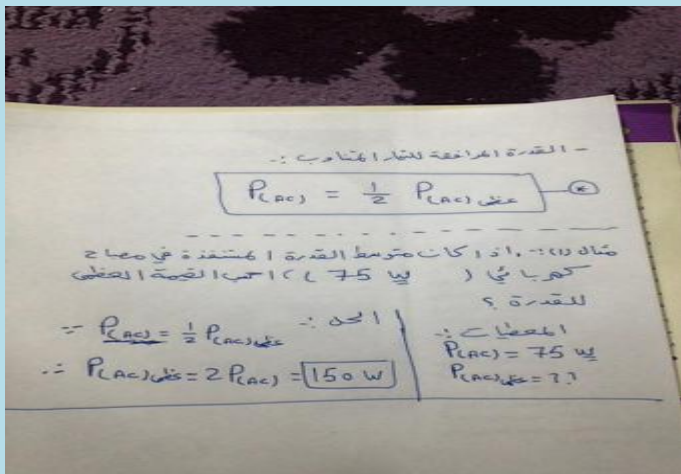 - القدرة المرافقة للتيار المتناوب :-
P(AC) = 1/2 P(AC) عظمى *
مثال (1) :- اذا كانت متوسط القدرة المستنفذة في مصباح
كهربائي ( 75 W ) احسب القيمة العظمى
للقدرة ؟
المعطيات :-
P(AC) = 75 W
P(AC) عظمى = ??
الحل :-
∵ P(AC) = 1/2 P(AC) عظمى
∴ P(AC) عظمى = 2 P(AC) = 150 W